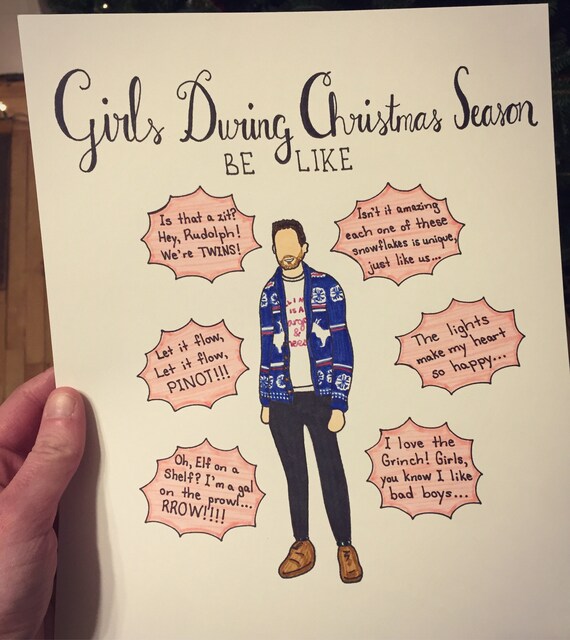 Girls During Christmas Season
BE LIKE
Is that a zit?
Hey, Rudolph!
We're TWINS!
Isn't it amazing
each one of these
snowflakes is unique,
just like us...
Let it flow,
Let it flow,
PINOT!!!
The lights
make my heart
so happy...
Oh, Elf on a
Shelf? I'm a gal
on the prowl...
RROW!!!!
I love the
Grinch! Girls,
you know I like
bad boys...
IS A
&